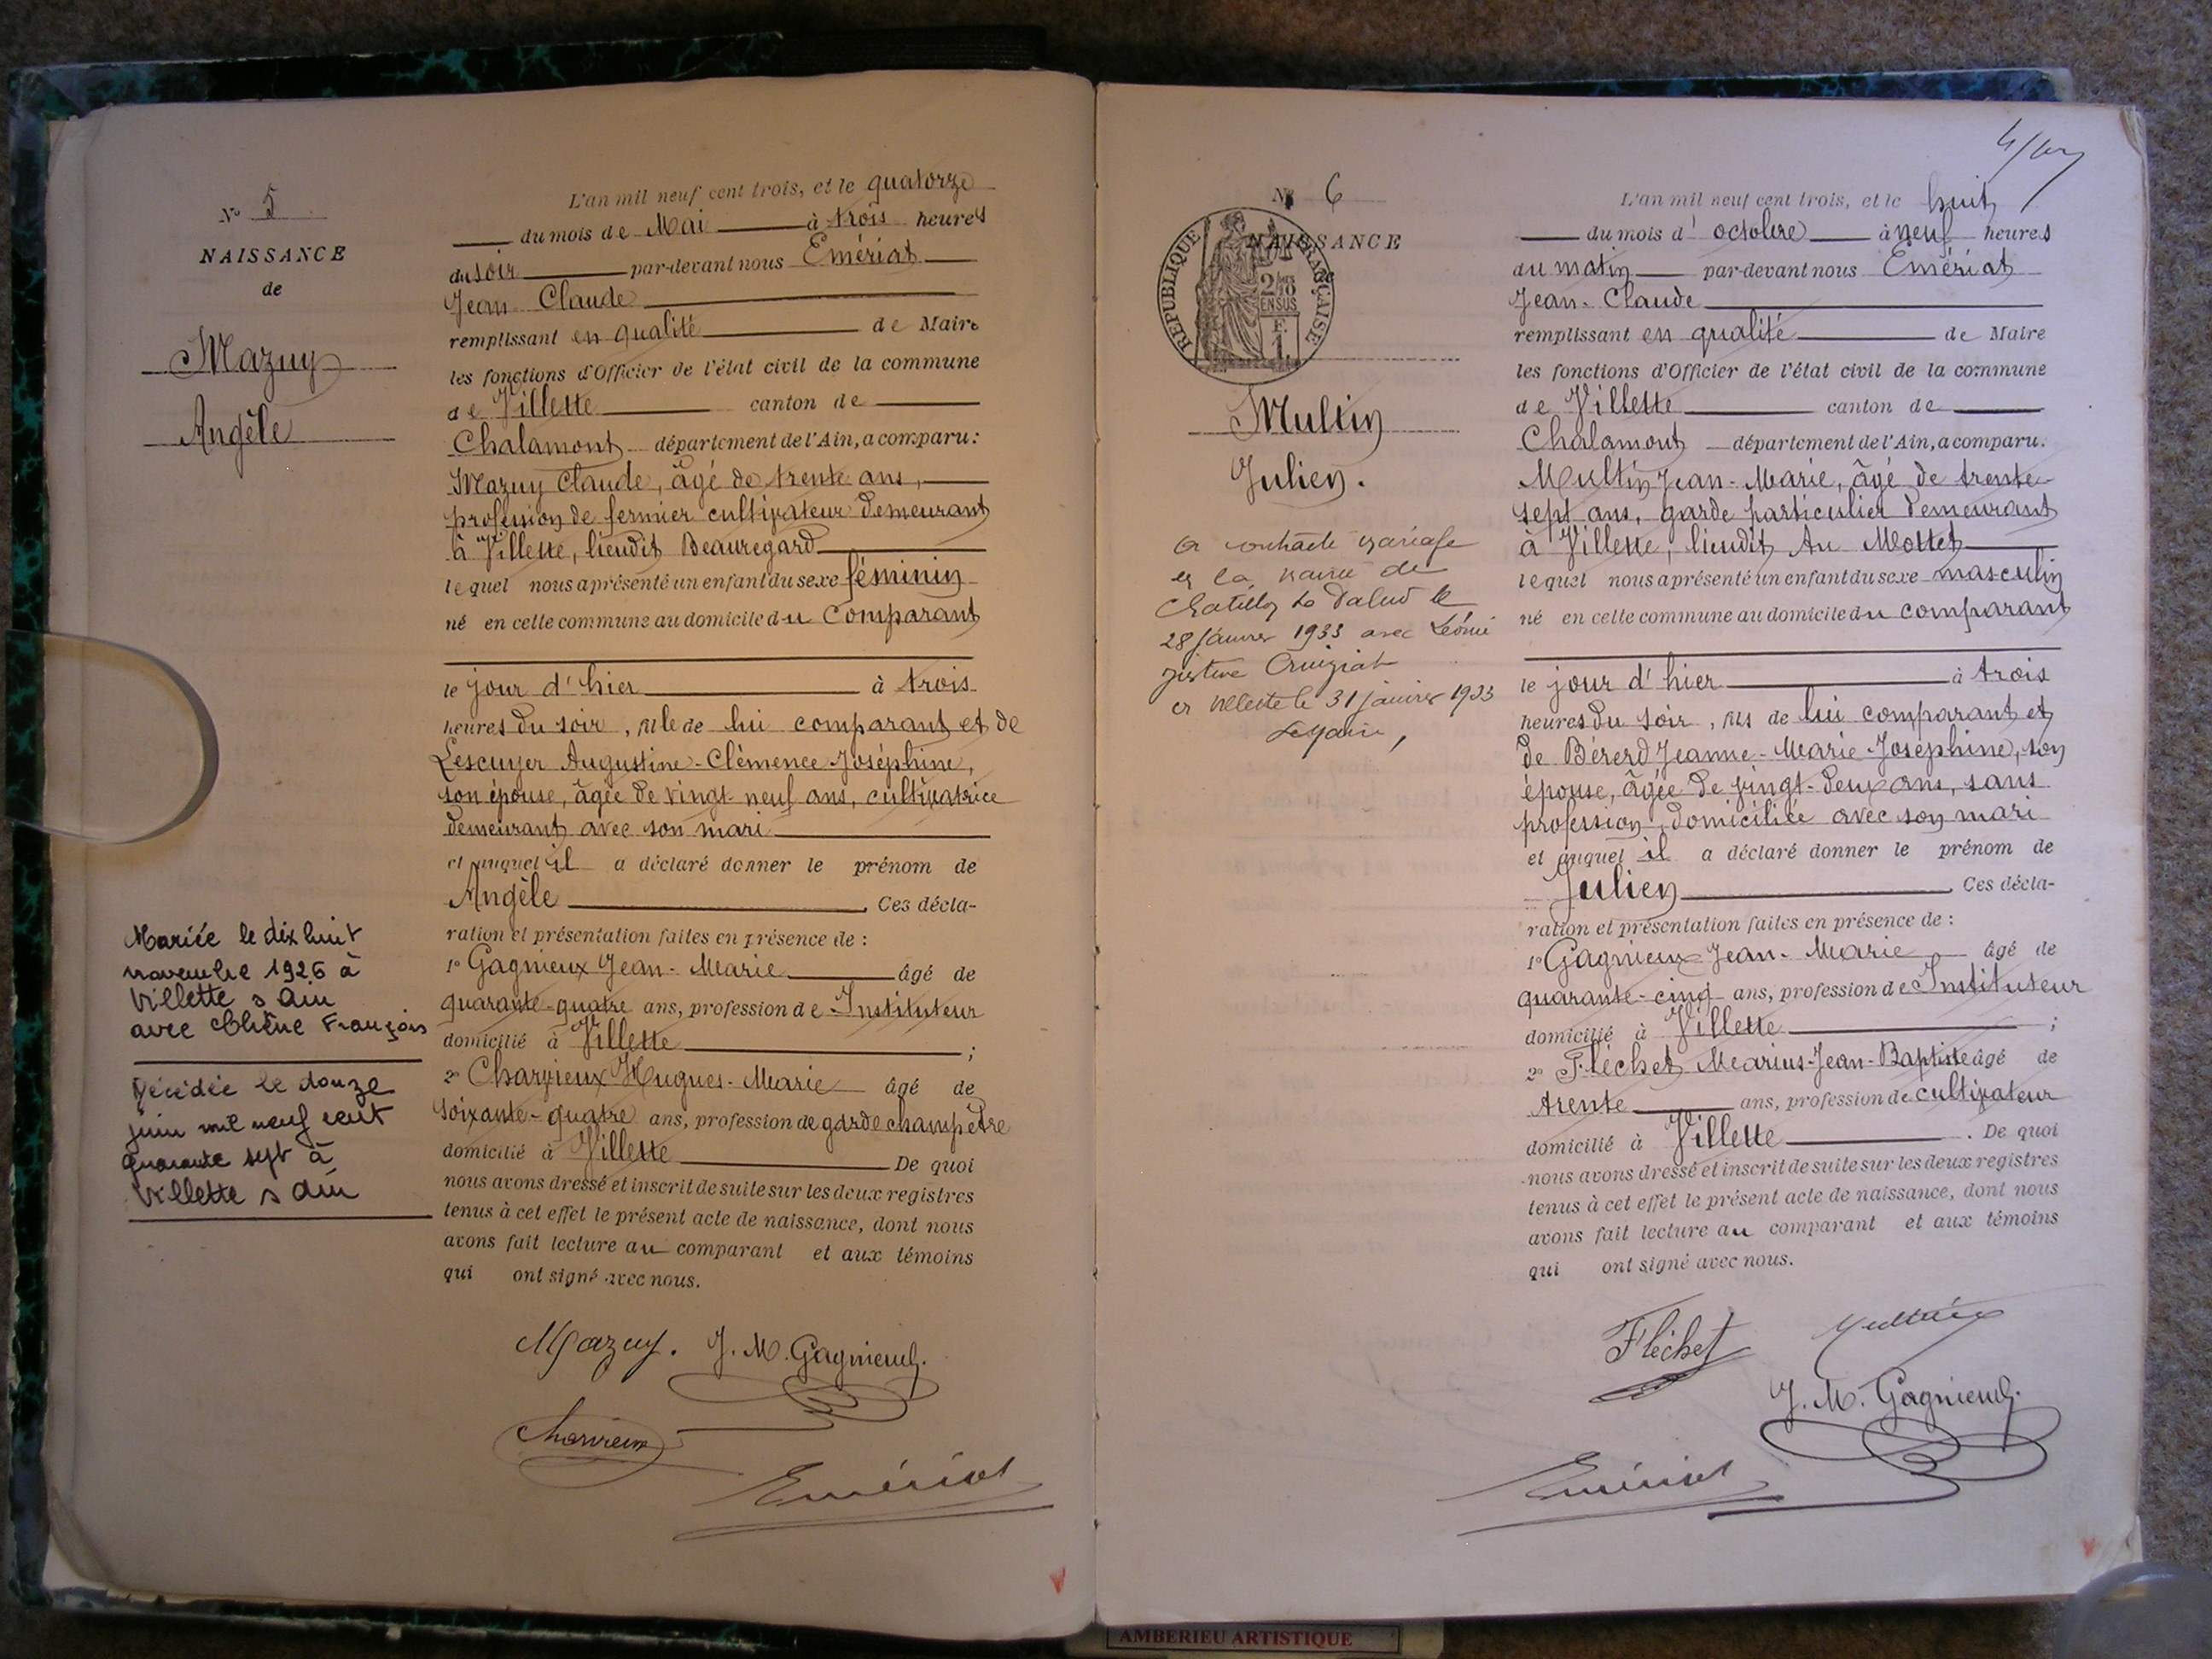 N° 5
NAISSANCE
de
Mazuy
Angèle
Mariée le dix huit
novembre 1926 à
Villette s Ain
avec Chêne François
Décédée le douze
juin mil neuf cent
quarante sept à
Villette s Ain
L'an mil neuf cent trois, et le quatorze
du mois de Mai à trois heures
du soir par-devant nous Emériat
Jean-Claude
remplissant en qualité de Maire
les fonctions d'Officier de l'état civil de la commune
de Villette canton de
Chalamont département de l'Ain, a comparu:
Mazuy Claude, âgé de trente ans,
profession de fermier cultivateur demeurant
à Villette, lieudit Beauregard
lequel nous a présenté un enfant du sexe féminin
né en cette commune au domicile du comparant
le jour d'hier à trois
heures du soir, fille de lui comparant et de
Lescuyer Augustine-Clémence-Joséphine,
son épouse, âgée de vingt-neuf ans, cultivatrice
demeurant avec son mari
et auquel il a déclaré donner le prénom de
Angèle. Ces décla-
ration et présentation faites en présence de :
1° Gagnieux Jean-Marie âgé de
quarante-quatre ans, profession de Instituteur
domicilié à Villette ;
2° Charvieux Hugues-Marie âgé de
soixante-quatre ans, profession de garde champêtre
domicilié à Villette De quoi
nous avons dressé et inscrit de suite sur les deux registres
tenus à cet effet le présent acte de naissance, dont nous
avons fait lecture au comparant et aux témoins
qui ont signé avec nous.
Mazuy. J. M. Gagnieux.
Charvieux
Emériat
4/
N° 6
NAISSANCE
de
RÉPUBLIQUE FRANÇAISE
2/10
EN SUS
F.
1.
Multin
Julien.
a contracté mariage
en la mairie de
Chatillon la Palud le
28 janvier 1933 avec Léonie
Justine Cruiziat
en Villette le 31 janvier 1933
Le Maire,
L'an mil neuf cent trois, et le huit
du mois d'octobre à neuf heures
du matin par-devant nous Emériat
Jean-Claude
remplissant en qualité de Maire
les fonctions d'Officier de l'état civil de la commune
de Villette canton de
Chalamont département de l'Ain, a comparu:
Multin Jean-Marie, âgé de trente-
sept ans, garde particulier demeurant
à Villette, lieudit Au Mottet
lequel nous a présenté un enfant du sexe masculin
né en cette commune au domicile du comparant
le jour d'hier à trois
heures du soir, fils de lui comparant et
de Bérerd Jeanne-Marie-Joséphine, son
épouse, âgée de vingt-deux ans, sans
profession, domiciliée avec son mari
et auquel il a déclaré donner le prénom de
Julien. Ces décla-
ration et présentation faites en présence de :
1° Gagnieux Jean-Marie âgé de
quarante-cinq ans, profession de Instituteur
domicilié à Villette ;
2° Fléchet Marius-Jean-Baptiste âgé de
trente ans, profession de cultivateur
domicilié à Villette. De quoi
nous avons dressé et inscrit de suite sur les deux registres
tenus à cet effet le présent acte de naissance, dont nous
avons fait lecture au comparant et aux témoins
qui ont signé avec nous.
Fléchet Multin
J. M. Gagnieux.
Emériat
AMBERIEU ARTISTIQUE